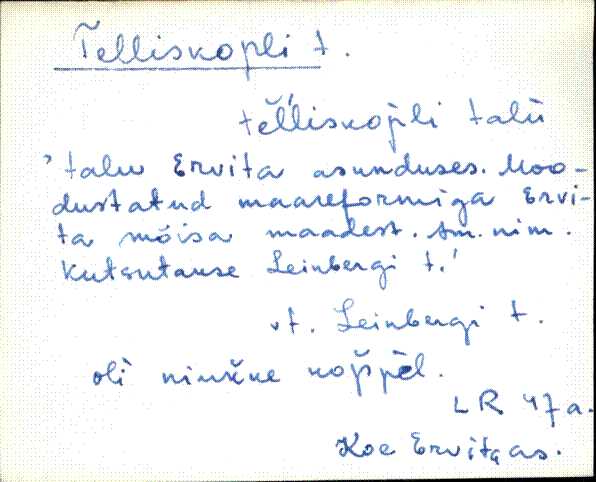 Telliskopli t.
tèl̀liskop̀li talù
'talu Ervita asunduses. Moo-
dustatud maareformiga Ervi-
ta mõisa maadest. Am. nim.
Kutsutause Leinbergi t.'
vt. Leinbergi t.
oli niukke
LR 47 a.
Koe Ervita as.